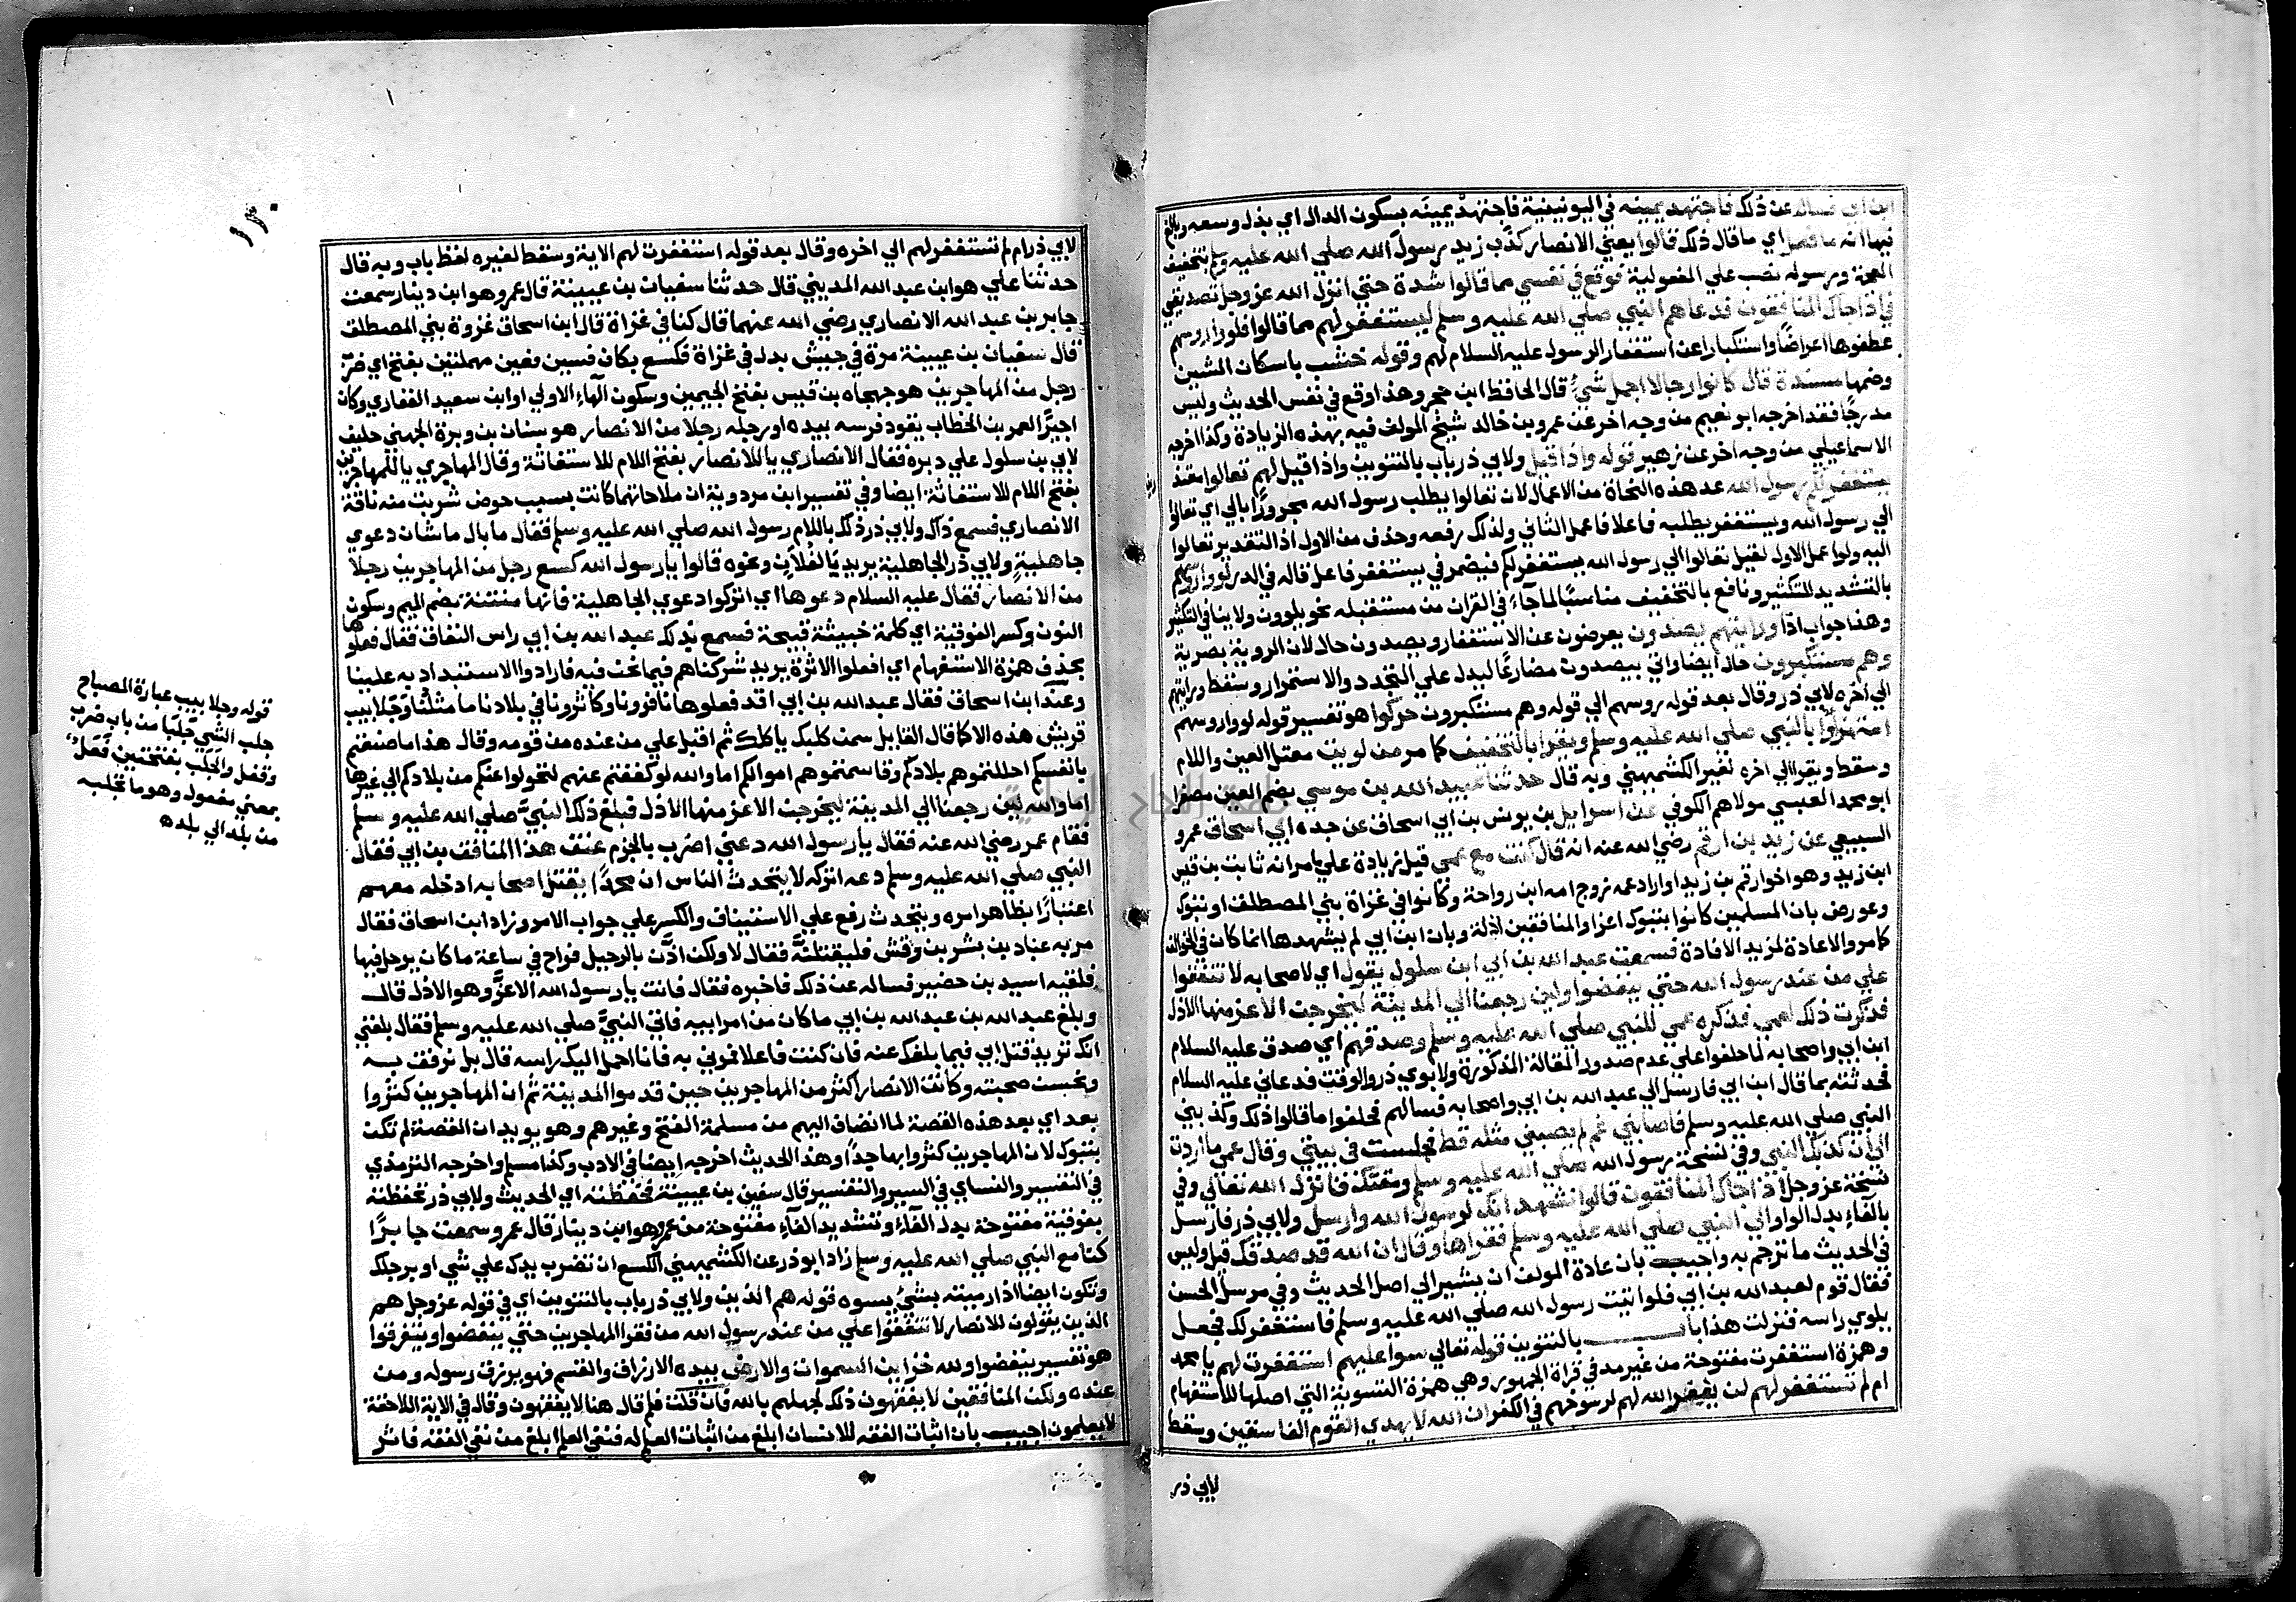 ابن ابي فساله عن ذلك فاجتهد يمينه في اليونينية فاجتهد يمينه بسكون الدال اي بذل وسعه وبالغ
فيها انه ما فعل اي ما قال ذلك قالوا يعني الانصار كذب زيد رسول الله صلي الله عليه وسلم بتخفيف
المعجمة ورسوله نصب علي المفعولية فوقع في نفسي مما قالوا شدة حتي انزل الله عز وجل تصديقي
في اذا جاك المنافقون فدعاهم النبي صلي الله عليه وسلم ليستغفر لهم مما قالوا فلووا روسهم
عطفوها اعراضا واستكبارا عن استغفار الرسول عليه السلام لهم وقوله خشب باسكان الشين
وضمها مسندة قال كانوا رجالا اجمل شيء قال الحافظ ابن حجر وهذا وقع في نفس الحديث وليس
مدرجا فقد اخرجه ابو نعيم من وجه اخر عن عمرو بن خالد شيخ المولف فيه بهذه الزيادة وكذا اخرجه
الاسماعيلي من وجه اخر عن زهير قوله واذا قيل ولابي ذر باب بالتنوين واذا قيل لهم تعالوا معتذ
يستغفر لكم رسول الله عد هذه النحاة من الاعمال لان تعالوا يطلب رسول الله مجرورا بالي اي تعالوا
الي رسول الله ويستغفر يطلبه فاعلا فاعمل الثاني ولذلك رفعه وحذف من الاول اذ التقدير تعالوا
اليه ولو اعمل الاول لقيل تعالوا الي رسول الله يستغفر لكم فيضمر في يستغفر فاعل قاله في الدر لووا روسهم
بالتشديد للتكثير ونافع بالتخفيف مناسبا لما جاء في القران من مستقبله نحو يلوون ولا ينافي التكثير
وهذا جواب اذا ورايتهم يصدون يعرضون عن الاستغفار ويصدون حال لان الروية بصرية
وهم مستكبرون حال ايضا واتي بيصدون مضارعا ليدل علي التجدد والاستمرار وسقط ورايتهم
الي اخره لابي ذر وقال بعد قوله روسهم الي قوله وهم مستكبرون حركوا هو تفسير قوله لووا روسهم
استهزوا بالنبي صلي الله عليه وسلم ويقرا بالتخفيف كما مر من لويت معتل العين واللام
وسقط ويقرا الي اخره لغير الكشميهني وبه قال حدثنا عبيد الله بن موسي بضم العين مصغرا
ابو محمد العبسي مولاهم الكوفي عن اسرايل بن يونس بن ابي اسحاق عن جده ابي اسحاق عمرو
السبيعي عن زيد بن ارقم رضي الله عنه انه قال كنت مع عمي قيل زيادة علي ما مر انه ثابت بن قيس
ابن زيد وهو اخو ارقم بن زيد او اراد عمه زوج امه ابن رواحة وكانوا في غزاة بني المصطلق او تبوك
وعورض بان المسلمين كانوا بتبوك اعزا والمنافقين اذلة وبان ابن ابي لم يشهدها انما كان في الخوالف
كما مر والاعادة لمزيد الافادة فسمعت عبد الله بن ابي ابن سلول يقول اي لاصحابه لا تنفقوا
علي من عند رسول الله حتي ينفضوا ولين رجعنا الي المدينة ليخرجن الاعز منها الاذل
فذكرت ذلك لعمي فذكره عمي للنبي صلي الله عليه وسلم وصدقهم اي صدق عليه السلام
ابن ابي واصحابه لما حلفوا علي عدم صدور المقالة المذكورة ولابوي ذر والوقت فدعاني عليه السلام
فحدثته بما قال ابن ابي فارسل الي عبد الله بن ابي واصحابه فسالهم فحلفوا ما قالوا ذلك وكذبني
النبي صلي الله عليه وسلم فاصابني غم لم يصبني مثله قط فجلست في بيتي وقال عمي ما اردت
الي ان كذبك النبي وفي نسخة رسول الله صلي الله عليه وسلم ومقتك فانزل الله تعالي وفي
نسخة عز وجل اذا جاك المنافقون قالوا نشهد انك لرسول الله وارسل ولابي ذر فارسل
بالفاء بدل الواو الي النبي صلي الله عليه وسلم فقراها وقال ان الله قد صدقك قيل وليس
في الحديث ما ترجم به واجيب بان عادة المولف ان يشير الي اصل الحديث وفي مرسل الحسن
فقال قوم لعبد الله بن ابي فلو اتيت رسول الله صلي الله عليه وسلم فاستغفر لك فجعل
يلوي راسه فنزلت هذا باب بالتنوين قوله تعالي سوا عليهم استغفرت لهم يا محمد
وهمزة استغفرت مفتوحة من غير مد في قراة الجمهور وهي همزة التسوية التي اصلها للاستفهام
ام لم تستغفر لهم لن يغفر الله لهم لرسوخهم في الكفر ان الله لا يهدي القوم الفاسقين وسقط
لابي ذر
١٣٠
لابي ذر ام لم تستغفر لهم الي اخره وقال بعد قوله استغفرت لهم الاية وسقط لغيره لفظ باب وبه قال
حدثنا علي هو ابن عبد الله المديني قال حدثنا سفيان بن عيينة قال عمرو هو ابن دينار سمعت
جابر بن عبد الله الانصاري رضي الله عنهما قال كنا في غزاة قال ابن اسحاق غزوة بني المصطلق
قال سفيان بن عيينة مرة في جيش بدل في غزاة فكسع بكاف فسين فعين مهملتين بفتح اي ضرب
رجل من المهاجرين هو جهجاه بن قيس بفتح الجيمين وسكون الهاء الاولي او ابن سعيد الغفاري وكان
اجيرا لعمر بن الخطاب يقود فرسه بيده او رجله رجلا من الانصار هو سنان بن وبرة الجهني حليف
لابي بن سلول علي دبره فقال الانصاري يا للانصار بفتح اللام للاستغاثة وقال المهاجري يا للمهاجرين
بفتح اللام للاستغاثة ايضا وفي تفسير ابن مردوية ان ملاحاتهما كانت بسبب حوض شربت منه ناقة
الانصاري فسمع ذاك ولابي ذر ذلك باللام رسول الله صلي الله عليه وسلم فقال ما بال ما شان دعوي
جاهلية ولابي ذر الجاهلية يريد يا لفلان ونحوه قالوا يا رسول الله كسع رجل من المهاجرين رجلا
من الانصار فقال عليه السلام دعوها اي اتركوا دعوي الجاهلية فانها منتنة بضم الميم وسكون
النون وكسر الفوقية اي كلمة خبيثة قبيحة فسمع بذلك عبد الله بن ابي راس النفاق فقال فعلوها
بحذف همزة الاستفهام اي افعلوا الاثرة يريد شركناهم فيما نحن فيه فارادوا الاستبداد به علينا
وعند ابن اسحاق فقال عبد الله بن ابي اقد فعلوها نافرونا وكاثرونا في بلادنا ما مثلنا وجلابيب
قريش هذه الا كما قال القايل سمن كلبك ياكلك ثم اقبل علي من عنده من قومه وقال هذا ما صنعتم
بانفسكم احللتموهم بلادكم وقاسمتموهم اموالكم اما والله لو كففتم عنهم لتحولوا عنكم من بلادكم الي غيرها
اما والله لين رجعنا الي المدينة ليخرجن الاعز منها الاذل فبلغ ذلك النبي صلي الله عليه وسلم
فقام عمر رضي الله عنه فقال يا رسول الله دعني اضرب بالجزم عنق هذا المنافق بن ابي فقال
النبي صلي الله عليه وسلم دعه اتركه لا يتحدث الناس ان محمدا يقتل اصحابه ادخله معهم
اعتبارا بظاهر امره ويتحدث رفع علي الاستيناف والكسر علي جواب الامر وزاد ابن اسحاق فقال
مر به عباد بن بشر بن وقش فليقتلنه فقال لا ولكن اذن بالرحيل فراح في ساعة ما كان يرحل فيها
فلقيه اسيد بن حضير فساله عن ذلك فاخبره فقال فانت يا رسول الله الاعز وهو الاذل قال
وبلغ عبد الله بن عبد الله بن ابي ما كان من امر ابيه فاتي النبي صلي الله عليه وسلم فقال بلغني
انك تريد قتل ابي فيما بلغك عنه فان كنت فاعلا فمرني به فانا احمل اليك راسه قال بل نرفق به
ونحسن صحبته وكانت الانصار اكثر من المهاجرين حين قدموا المدينة ثم ان المهاجرين كثروا
بعد اي بعد هذه القصة لما انضاف اليهم من مسلمة الفتح وغيرهم وهو يويد ان القصة لم تكن
بتبوك لان المهاجرين كثروا بها جدا وهذا الحديث اخرجه ايضا في الادب وكذا مسلم واخرجه الترمذي
في التفسير والنساي في السير والتفسير قال سفين بن عيينة فحفظته اي الحديث ولابي ذر تحفظته
بفوقية مفتوحة بدل الفاء وتشديد الفاء مفتوحة من عمرو هو ابن دينار قال عمرو سمعت جابرا
كنا مع النبي صلي الله عليه وسلم زاد ابو ذر عن الكشميهني الكسع ان تضرب بيدك علي شي او برجلك
وتكون ايضا اذا رميته بشيء يسوه قوله هم الذين ولابي ذر باب بالتنوين اي في قوله عز وجل هم
الذين يقولون للانصار لا تنفقوا علي من عند رسول الله من فقرا المهاجرين حتي ينفضوا ويتفرقوا
هو تفسير ينفضوا ولله خزاين السموات والارض بيده الارزاق والقسم فهو يرزق رسوله ومن
عنده ولكن المنافقين لا يفقهون ذلك لجهلهم بالله فان قلت فلم قال هنا لا يفقهون وقال في الاية اللاحقة
لا يعلمون اجيب بان اثبات الفقه للانسان ابلغ من اثبات العلم له فنفي العلم ابلغ من نفي الفقه فاثر
قوله وجلابيب عبارة المصباح
جلب الشي جلبا من باب ضرب
وقتل والجلب بفتحتين فعل
بمعني مفعول وهو ما تجلبه
من بلد الي بلده